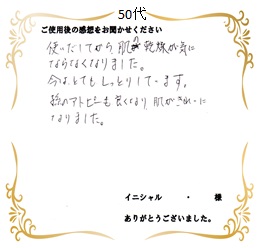 50代
ご使用後の感想をお聞かせください
使いだしてから、肌の乾燥が気に
ならなくなりました。
今はとてもしっとりしています。
孫のアトピーも良くなり、肌がきれいに
なりました。
イニシャル ・ 様
ありがとうございました。